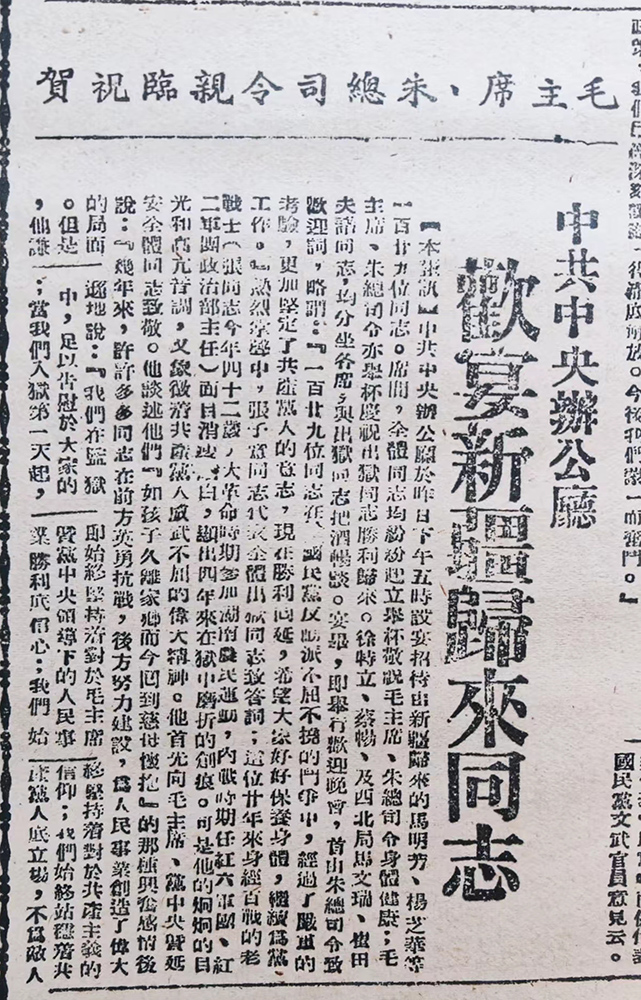 毛主席、朱總司令親臨祝賀
得澈底解放。今後我們將一面奮鬥。』
國民黨文武官員意見云。
中共中央辦公廳
歡宴新疆歸來同志
【本報訊】中共中央辦公廳於昨日下午五時設宴招待出新疆歸來的馬明芳、楊芝華等
一百廿九位同志。席間，全體同志均紛紛起立舉杯敬祝毛主席、朱總司令身體健康；毛
主席、朱總司令亦舉杯慶祝出獄同志勝利歸來。徐特立、蔡暢、及西北局馬文瑞、崔田
夫諸同志，均分坐各席，與出獄同志把酒暢談。宴畢，即舉行歡迎晚會，首由朱總司令致
歡迎詞，略謂：『一百廿九位同志在國民黨反動派不屈不撓的鬥爭中，經過了嚴重的
考驗，更加堅定了共產黨人的意志，現在勝利回延，希望大家好好保養身體，繼續爲黨
工作。』熱烈掌聲中，張子意同志代表全體出獄同志致答詞；這位廿年來身經百戰的老
戰士（張同志今年四十二歲，大革命時期參加湖南農民運動，內戰時期任紅六軍團、紅
二軍團政治部主任）面目消瘦蒼白，顯出四年來在獄中磨折的創痕。可是他的炯炯的目
光和高亢音調，又象徵着共產黨人威武不屈的偉大精神。他首先向毛主席、黨中央暨延
安全體同志致敬。他談述他們『如孩子久離家鄉而今回到慈母懷抱』的那種興奮感情後
說：『幾年來，許許多多同志在前方英勇抗戰，後方努力建設，爲人民事業創造了偉大
的局面
。但是
，他謙
遜地說：『我們在監獄
中，足以告慰於大家的
；當我們入獄第一天起，
即始終堅持着對於毛主席
暨黨中央領導下的人民事
業勝利底信心；我們始
終堅持着對於共產主義的
信仰；我們始終站穩着共
產黨人底立場，不爲敵人